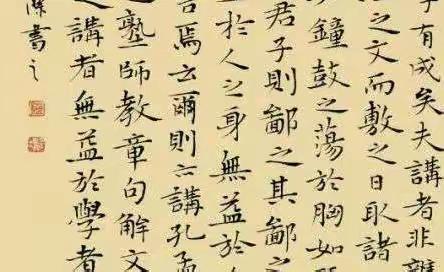 有成矣夫講者非
之文而敷之日取諸
鐘鼓之蕩於胸如
君子則鄙之其鄙之
於人之身無益於
焉云爾則講孔孟
塾師教章句解文
之講者無益於學者
書之